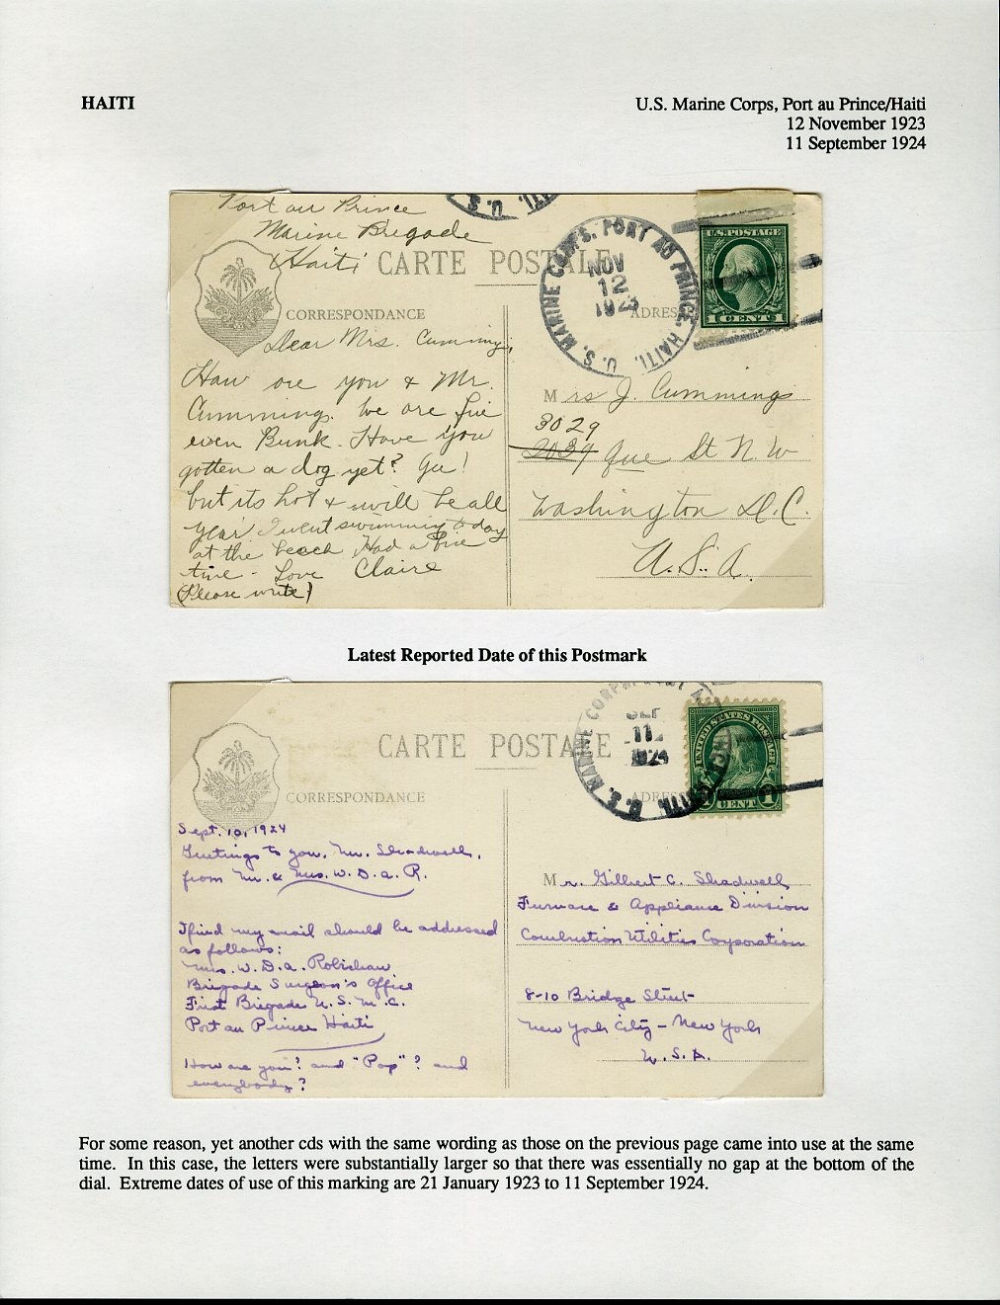 HAITI
U.S. Marine Corps, Port au Prince/Haiti
12 November 1923
11 September 1924
Port au Prince
Marine Brigade
Haiti
CARTE POSTALE
CORRESPONDANCE
ADRES
U. S. MARINE CORPS. PORT AU PRINCE, HAITI.
NOV
12
1923
U.S. POSTAGE
1 CENT 1
Dear Mrs. Cummings,
How are you & Mr.
Cummings. We are fine
even Bunk. Have you
gotten a dog yet? Gee!
but its hot & will be all
year I went swimming to day
at the beach Had a fine
time - Love Claire
(Please write)
Mrs J. Cummings
3029
2039 Que St N.W
Washington D.C.
U.S.A.
Latest Reported Date of this Postmark
CARTE POSTALE
CORRESPONDANCE
ADRES
U. S. MARINE CORPS
SEP
11
1924
UNITED STATES POSTAGE
1 CENT 1
Sept. 10, 1924
Greetings to you, Mr. Shadwell,
from Mr. & Mrs. W. D. A. R.
I find my mail should be addressed
as follows:
Mrs. W. D. A. Robishaw
Brigade Surgeon's Office
First Brigade U. S. M. C.
Port au Prince Haiti
How are you? and "Pop"? and
everybody?
Mr. Gilbert C. Shadwell
Furnace & Appliance Division
Combustion Utilities Corporation
8-10 Bridge Street
New York City - New York
U. S. A.
For some reason, yet another cds with the same wording as those on the previous page came into use at the same
time. In this case, the letters were substantially larger so that there was essentially no gap at the bottom of the
dial. Extreme dates of use of this marking are 21 January 1923 to 11 September 1924.